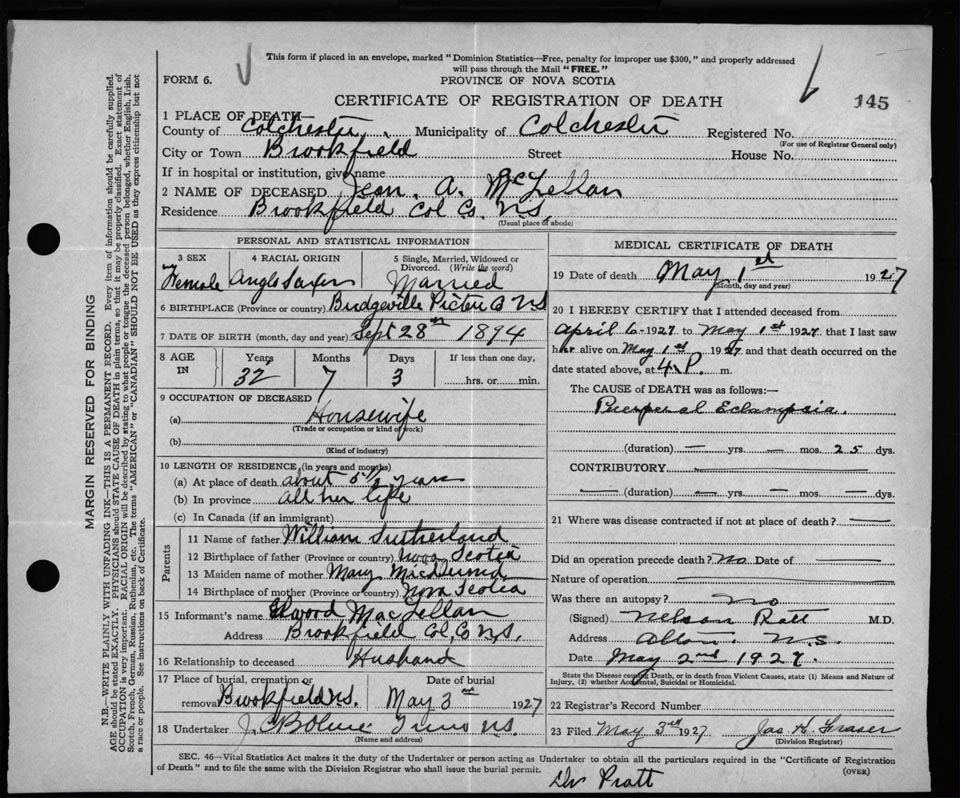 This form if placed in an envelope, marked "Dominion Statistics—Free, penalty for improper use $300," and properly addressed
will pass through the Mail "FREE."
FORM 6.
PROVINCE OF NOVA SCOTIA
CERTIFICATE OF REGISTRATION OF DEATH
145
1 PLACE OF DEATH
County of Colchester Municipality of Colchester Registered No.
(For use of Registrar General only)
City or Town Brookfield Street House No.
If in hospital or institution, give name
2 NAME OF DECEASED Jean A. McLellan
Residence Brookfield Col Co. N.S.
(Usual place of abode)
PERSONAL AND STATISTICAL INFORMATION
3 SEX 4 RACIAL ORIGIN 5 Single, Married, Widowed or Divorced. (Write the word)
Female Anglo Saxon Married
6 BIRTHPLACE (Province or country) Bridgeville Pictou Co NS
7 DATE OF BIRTH (month, day and year) Sept 28th 1894
8 AGE IN Years Months Days If less than one day,
32 7 3 hrs. or min.
9 OCCUPATION OF DECEASED
(a) Housewife
(Trade or occupation or kind of work)
(b)
(Kind of industry)
10 LENGTH OF RESIDENCE (in years and months)
(a) At place of death about 5 1/2 years
(b) In province all her life
(c) In Canada (if an immigrant)
Parents
11 Name of father William Sutherland
12 Birthplace of father (Province or country) Nova Scotia
13 Maiden name of mother Mary
14 Birthplace of mother (Province or country) Nova Scotia
15 Informant's name Elwood MacLellan
Address Brookfield Col, Co N.S.
16 Relationship to deceased Husband
17 Place of burial, cremation or removal Date of burial
Brookfield N.S. May 3rd 1927
18 Undertaker J. Truro N.S.
(Name and address)
MEDICAL CERTIFICATE OF DEATH
19 Date of death May 1st 1927
(Month, day and year)
20 I HEREBY CERTIFY that I attended deceased from
April 6 - 1927 to May 1st 1927 that I last saw
her alive on May 1st 1927 and that death occurred on the
date stated above, at 4 P. m.
The CAUSE of DEATH was as follows:—
Puerperal Eclampsia.
(duration) — yrs. — mos. 25 dys.
CONTRIBUTORY
(duration) — yrs. — mos. — dys.
21 Where was disease contracted if not at place of death? —
Did an operation precede death? No Date of —
Nature of operation
Was there an autopsy? No
(Signed) Nelson Pratt M.D.
Address N.S.
Date May 2nd 1927.
State the Disease causing Death, or in death from Violent Causes, state (1) Means and Nature of
Injury, (2) whether Accidental, Suicidal or Homicidal.
22 Registrar's Record Number
23 Filed May 3rd 1927 Jas H. Fraser
(Division Registrar)
SEC. 46—Vital Statistics Act makes it the duty of the Undertaker or person acting as Undertaker to obtain all the particulars required in the "Certificate of Registration
of Death" and to file the same with the Division Registrar who shall issue the burial permit.
(OVER)
Dr Pratt
MARGIN RESERVED FOR BINDING
N.B.—WRITE PLAINLY WITH UNFADING INK—THIS IS A PERMANENT RECORD. Every item of information should be carefully supplied.
AGE should be stated EXACTLY. PHYSICIANS should STATE CAUSE OF DEATH in plain terms, so that it may be properly classified. Exact statement of
OCCUPATION is very important. RACIAL ORIGIN will be described by stating to what people or tongue the deceased person belonged, whether English, Irish,
Scotch, French, German, Russian, Ruthenian, etc. The terms "AMERICAN" or "CANADIAN" SHOULD NOT BE USED as they express citizenship but not
a race or people. See instructions on back of Certificate.